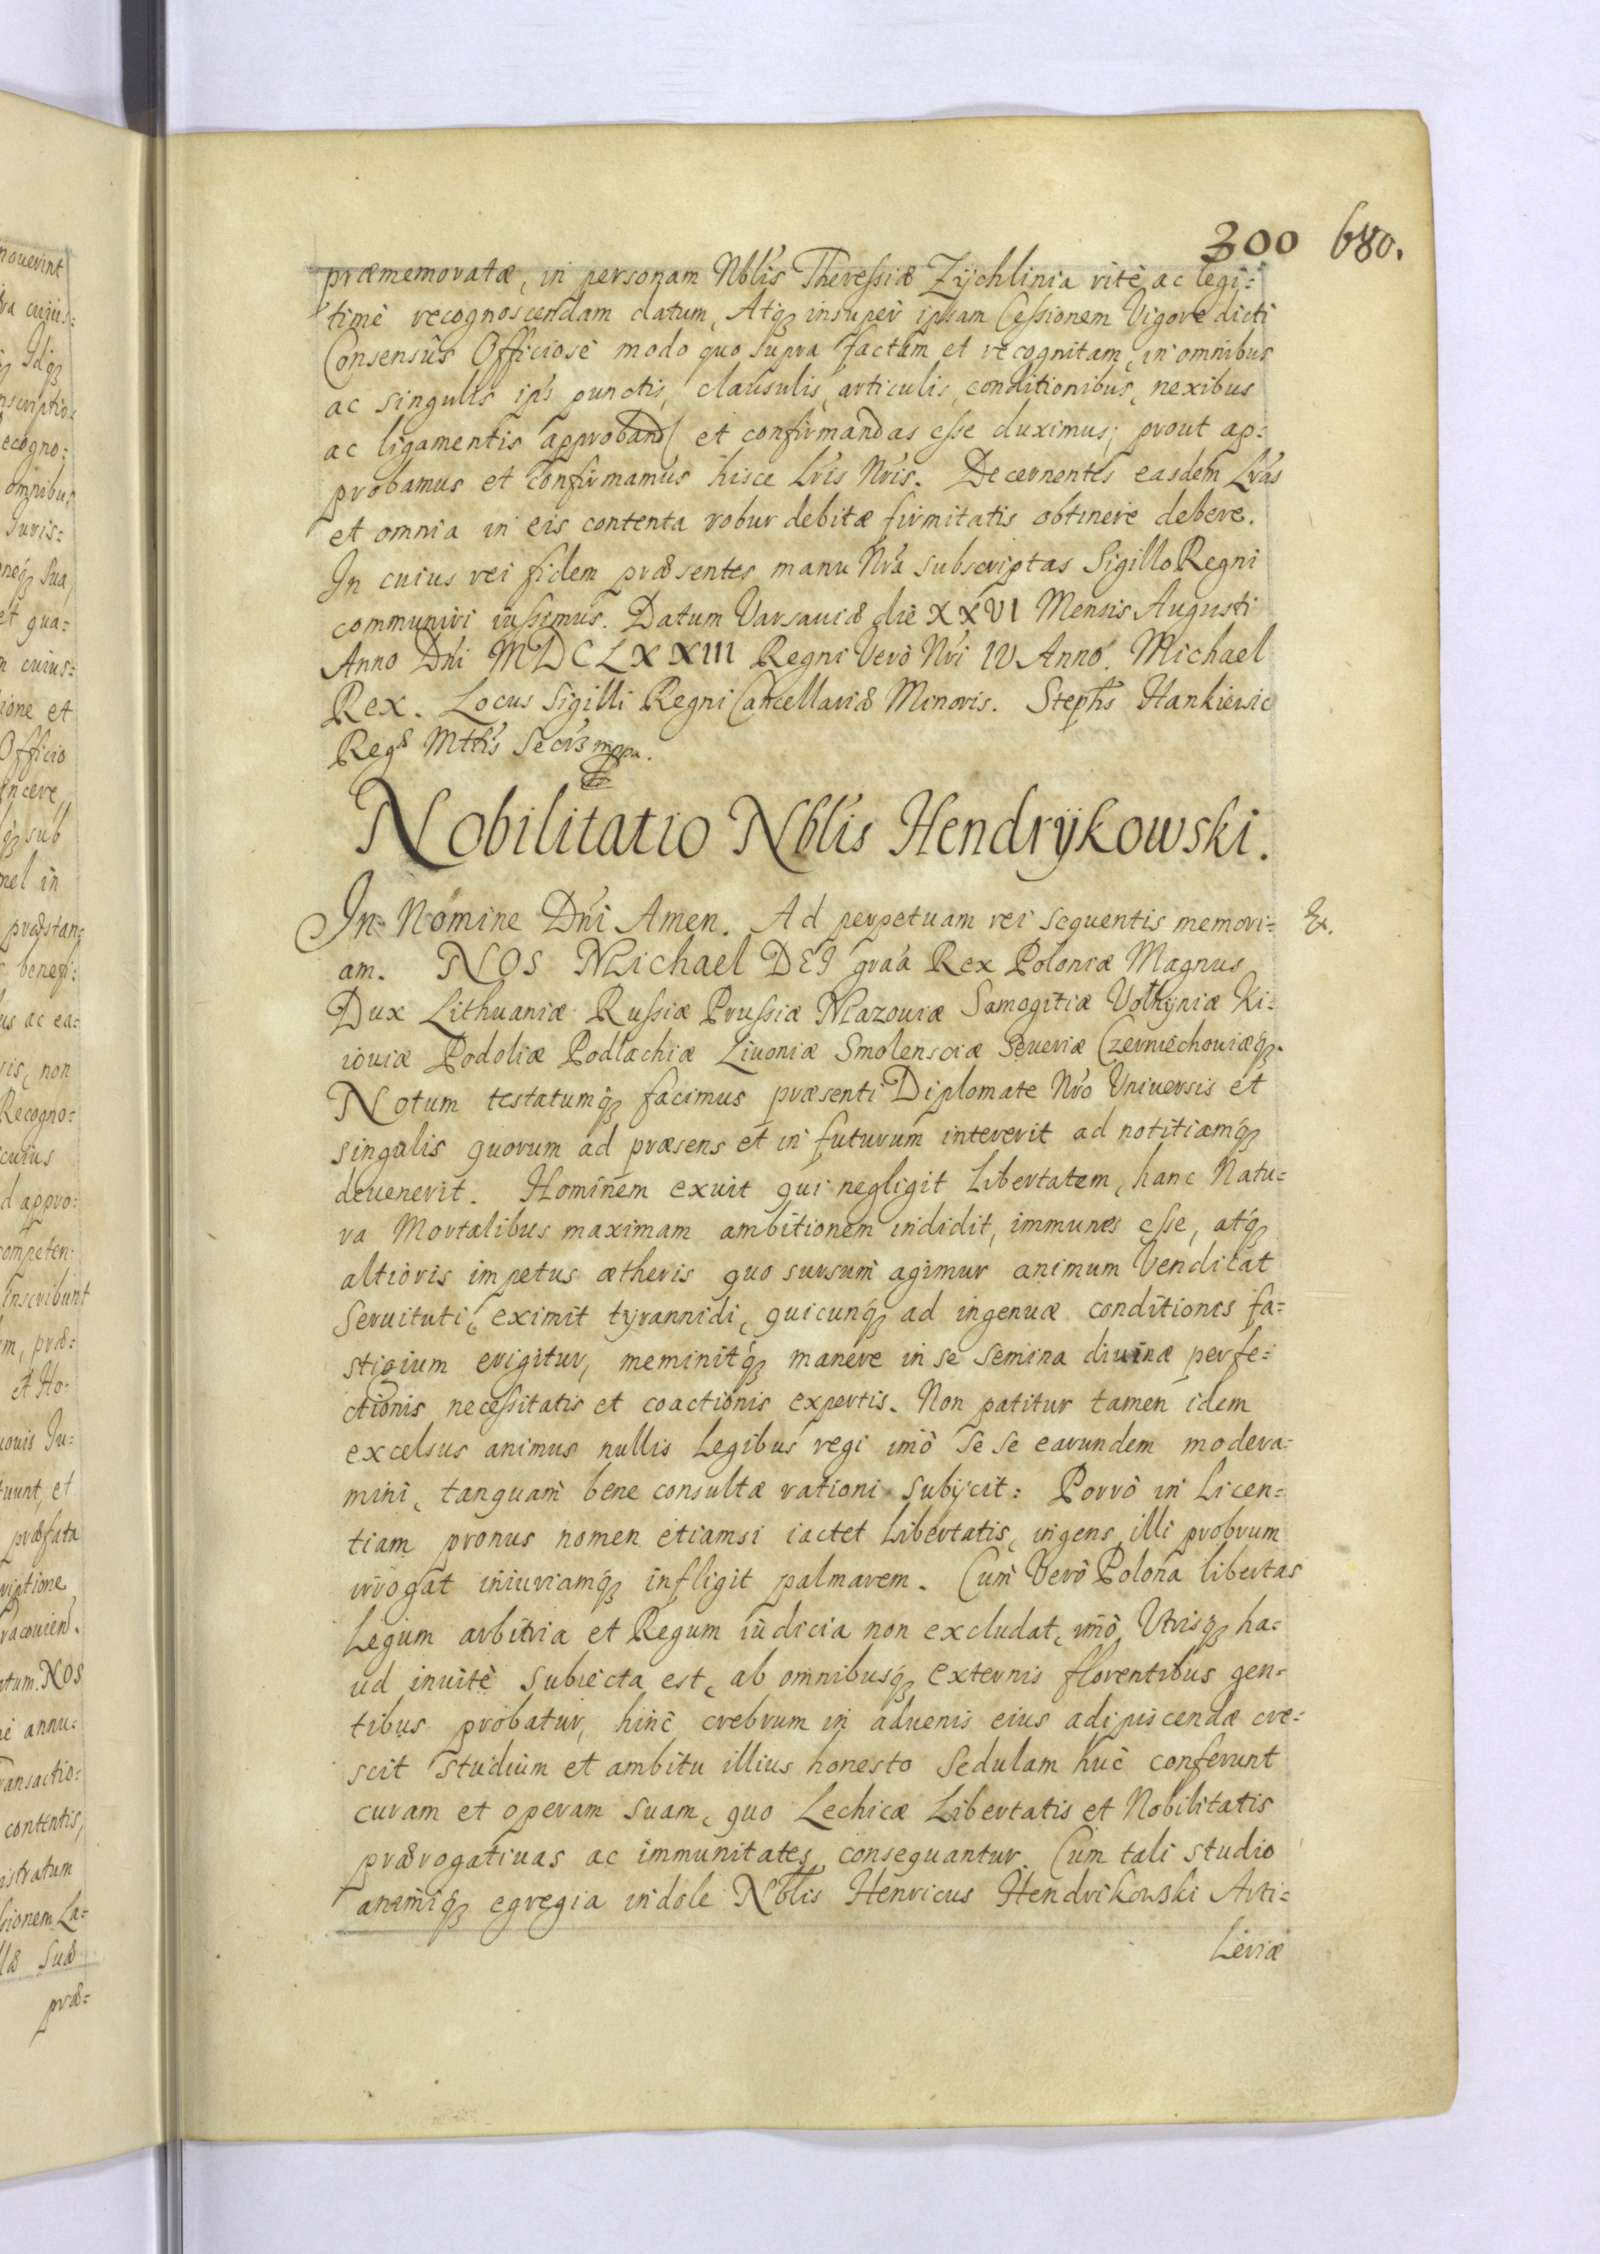 300 680.
præmemoratæ, in personam Nblis Theressiæ Zÿchlinia ritè ac legi=
timè recognoscendam datum, Atq insuper ipsam Cessionem Vigore dicti
Consensûs Officiosè modo quo supra factam et recognitam, in omnibus
ac singulis ips punctis, clausulis, articulis, conditionibus, nexibus
ac ligamentis approband et confirmandas esse duximus; prout ap=
probamus et confirmamus hisce Lris Nris. Decernentes easdem Lras
et omnia in eis contenta robur debitæ firmitatis obtinere debere.
In cuius rei fidem præsentes manu Nra subscriptas Sigillo Regni
communiri iussimus. Datum Varsauiæ die XXVI Mensis Augusti
Anno Dni MDCLXXIII Regni Verò Nri IV Anno. Michael
Rex. Locus Sigilli Regni Cancellariæ Minoris. Stephs Hankiewic
Regæ Mttis Secrs mppa.
Nobilitatio Nblis Hendrÿkowski.
In Nomine Dni Amen. Ad perpetuam rei sequentis memori= Ex.
am. NOS Michael DEI graa Rex Poloniæ Magnus
Dux Lithuaniæ Russiæ Prussiæ Mazouiæ Samogitiæ Volhÿniæ Ki=
iouiæ Podoliæ Podlachiæ Liuoniæ Smolensciæ Seueriæ Czerniechouiæq.
Notum testatumq facimus præsenti Diplomate Nro Vniuersis et
singulis quorum ad præsens et in futurum intererit ad notitiamq
deuenerit. Hominem exuit qui negligit Libertatem, hanc Natu=
ra Mortalibus maximam ambitionem indidit, immunes esse, atq
altioris impetus ætheris quo sursum agimur animum Venditat
Seruituti, eximit tÿrannidi, quicunq ad ingenuæ conditiones fa=
stigium erigitur, meminitq manere in se semina diuinæ perfe=
ctionis necessitatis et coactionis expertis. Non patitur tamen idem
excelsus animus nullis Legibus regi imò se se earundem modera=
mini, tanquam bene consultæ rationi subÿcit: Porrò in Licen=
tiam pronus nomen etiamsi iactet Libertatis, ingens illi probrum
irrogat iniuriamq infligit palmarem. Cum Verò Polona libertas
Legum arbitria et Regum iudicia non excludat, imò Vtrisq ha=
ud inuitè subiecta est, ab omnibusq externis florentibus gen=
tibus probatur, hinc crebrum in aduenis eius adipiscendæ cre=
scit studium et ambitu illius honesto Sedulam huc conferunt
curam et operam suam, quo Lechicæ Libertatis et Nobilitatis
prærogatiuas ac immunitates consequantur. Cum tali studio
animiq egregia indole Nblis Henricus Hendrikowski Arti=
Leriæ